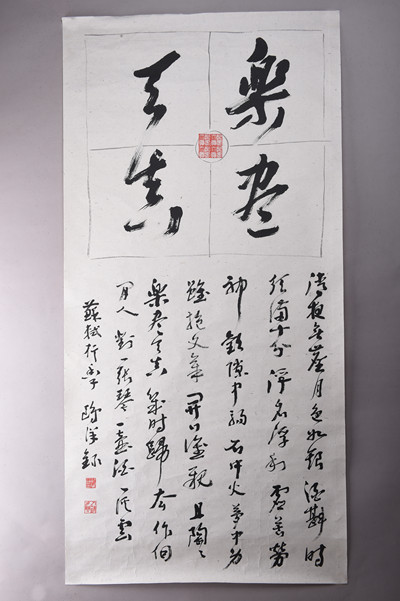 楽尽
天真
清夜無塵月色如銀酒斟時
須滿十分浮名浮利虛苦勞
神歎隙中駒石中火夢中身
雖抱文章開口誰親且陶々
楽尽天真幾時歸去作個
閒人對一張琴一壺酒一溪雲
蘇軾行香子 錄